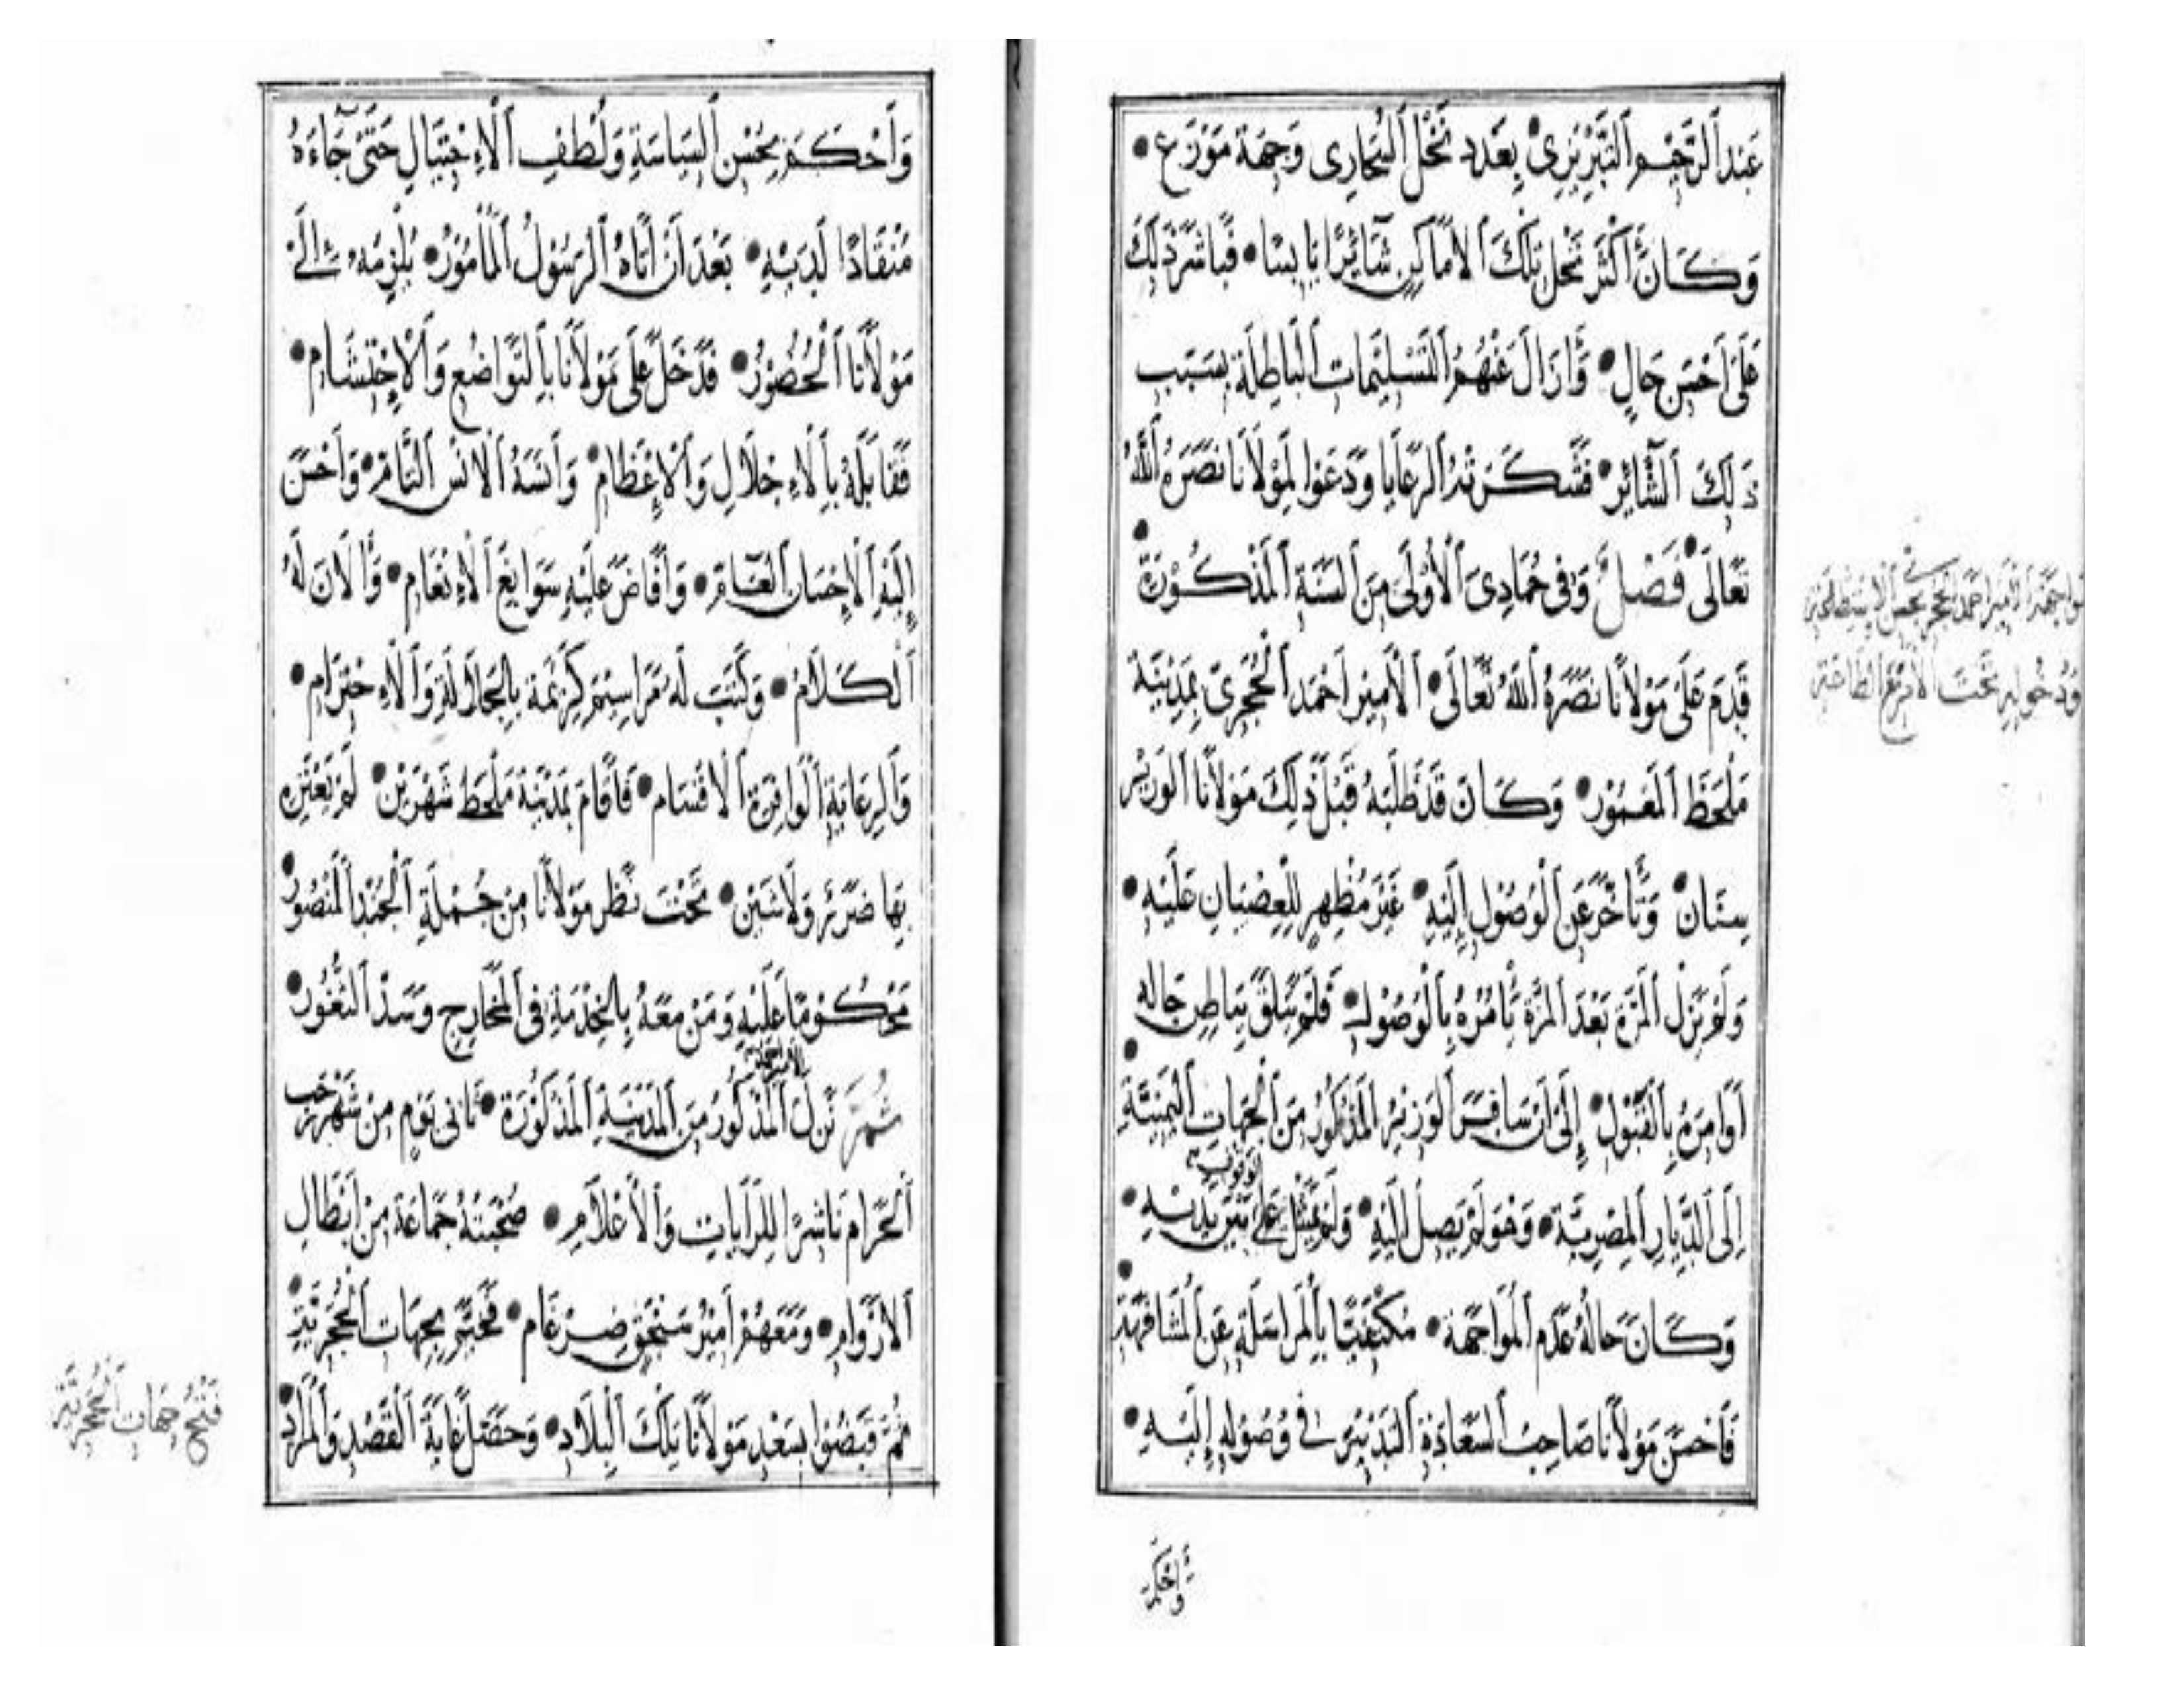 عَبْدالرَّحِيْمِ اَلتَّبْرِيْزِىْ • بِعَدَدِ نَخْلِ اَلْبَحَارِى وَجِهَةِ مَوْزَع •
وَكَانَ اَكْثَرُ نَخْلِ تِلْكَ اَلْاَمَاكِنِ يَابِسًا • فَبَاشَرَ ذٰلِكَ
عَلَى اَحْسَنِ حَالٍ • وَاَزَالَ عَنْهُمُ اَلتَّسْلِيْمَاتِ اَلْبَاطِلَةِ بِسَبَبِ
ذَلِكَ • فَشَكَرَتْهُ اَلرَّعَايَا وَدَعَوْا لِمَوْلَانَا نَصَرَهُ اَللّٰهُ
تَعَالَى • فَصْلٌ وَفى جُمَادِىَ اَلْاُوْلَى مِنَ اَلسَّنَةِ اَلْمَذْكُوْرَةِ •
قَدِمَ عَلَى مَوْلَانَا نَصَرَهُ اَللّٰهُ تَعَالَى • اَلْاَمِيْر اَحْمَد اَلْحُجَرِىّ بِمَدِيْنَةِ
مَلْحَظَ اَلْمَعْمُوْر • وَكَانَ قَدْ طَلَبَهُ قَبْلَ ذٰلِكَ مَوْلَانَا اَلْوَزِيْر
سِنَان • وَتَأَخَّرَ عَنِ اَلْوُصُوْلِ اِلَيْهِ • غَيْرَ مُظْهِرٍ لِلْعِصْيَانِ عَلَيْهِ •
وَلَمْ يَزَلْ اَلْمَرَّةَ بَعْدَ اَلْمَرَّةِ يَأْمُرُهُ بِاَلْوُصُوْلِ • فَلَمْ يَتَلَقَّ بِبَاطِنِ حَالِهِ
اَوَامِرَهُ بِاَلْقَبُوْلِ • اِلَى اَنْ سَافَرَ اَلْوَزِيْرُ اَلْمَذْكُوْرُ مِنَ اَلْجِهَاتِ اَلْيَمَنِيَّةِ •
اِلَى اَلدِّيَارِ اَلْمِصْرِيَّةِ • وَهُوَ لَمْ يَصِلْ اِلَيْهِ • وَلَمْ يَمْثُلْ بَيْنَ يَدَيْهِ •
وَكَانَ حَالُهُ عَدَمَ اَلْمُوَاجَهَة • مُكْتَفِيًا بِاَلْمُرَاسَلَةِ عَنِ اَلْمُشَافَهَةِ •
فَاَحْسَنَ مَوْلَانَا صَاحِبُ اَلسَّعَادَةِ اَلتَّدْبِيْرَ فى وُصُوْلِهِ اِلَيْهِ •
وَاَحْكَمَ
مُوَاجَهَة اَلْاَمِيْر اَحْمَد اَلْحُجَرِىّ
وَدُخُوْلِهِ تَحْتَ اَلْاَمْرِ مَعَ اَلطَّاعَةِ
وَاَحْكَمَ بِحُسْنِ اَلسِّيَاسَةِ وَلُطْفِ اَلْاِحْتِيَالِ حَتَّى جَآءَهُ
مُنْقَادًا لَدَيْهِ • بَعْدَ اَنْ اَتَاهُ اَلرَّسُوْلُ اَلْمَأْمُوْرُ • يُلْزِمُهُ اِلَى
مَوْلَانَا اَلْحُضُوْرُ • فَدَخَلَ عَلَى مَوْلَانَا بِاَلتَّوَاضُعِ وَاَلْاِحْتِشَامِ •
فَقَابَلَهُ بِاَلْاِجْلَالِ وَاَلْاِعْظَامِ • وَآنَسَهُ اَلْاُنْسَ اَلتَّامّ • وَاَحْسَنَ
اِلَيْهِ اَلْاِحْسَانَ اَلْعَامّ • وَاَفَاضَ عَلَيْهِ سَوَابِغَ اَلْاِنْعَامِ • وَاَلَانَ لَهُ
اَلْكَلَامُ • وَكَتَبَ لَهُ مَرَاسِيْمَ كَرِيْمَة بِالْجَلَالَةِ وَاَلْاِحْتِرَامِ •
وَاَلرِّعَايَةِ اَلْوَافِرَةِ اَلْاَقْسَامِ • فَاَقَامَ بِمَدْيَنَةِ مَلْحَظْ شَهْرَيْن • لَمْ يَعْتَرِهِ
بِهَا ضَرَرٌ وَلَا شَيْن • تَحْتَ نَظَرِ مَوْلَانَا مِنْ جُمْلَةِ اَلْجُنْدِ اَلْمَنْصُوْرِ •
مَحْكُوْمًا عَلَيْهِ وَمَنْ مَعَهُ بِالْخِدْمَةِ فى اَلْمَخَارِجِ وَسَدِّ اَلثُّغُوْرِ •
ثُمَّ نَزَلَ اَلْمَذْكُوْرُ مِنَ اَلْمَدِيْنَةِ اَلْمَذْكُوْرَةِ • ثَانى يَوْمٍ مِنْ شَهْرِ رَجَب
اَلْحَرَامِ نَاشِرًا لِلرَّايَاتِ وَاَلْاَعْلَامِ • صُحْبَتَهُ جَمَاعَةٌ مِنْ اَبْطَالِ
اَلْاَرْوَامِ • وَمَعَهُمْ اَمِيْرُ سَنْجَقٍ ضِرْغَام • فَخَيَّمَ بِجِهَاتِ اَلْحُجَرِيَّةِ •
ثُمَّ قَبَضُوْا بِسَعْدِ مَوْلَانَا تِلْكَ اَلْبِلَادِ • وَحَصَلَ غَايَةُ اَلْقَصْدِ وَاَلْمُرَادِ •
فَتْحُ جِهَاتِ اَلْحُجَرِيَّةِ